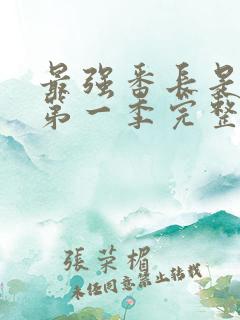 最强番長是
第一季完整
張荣楣
未经同意禁止转载